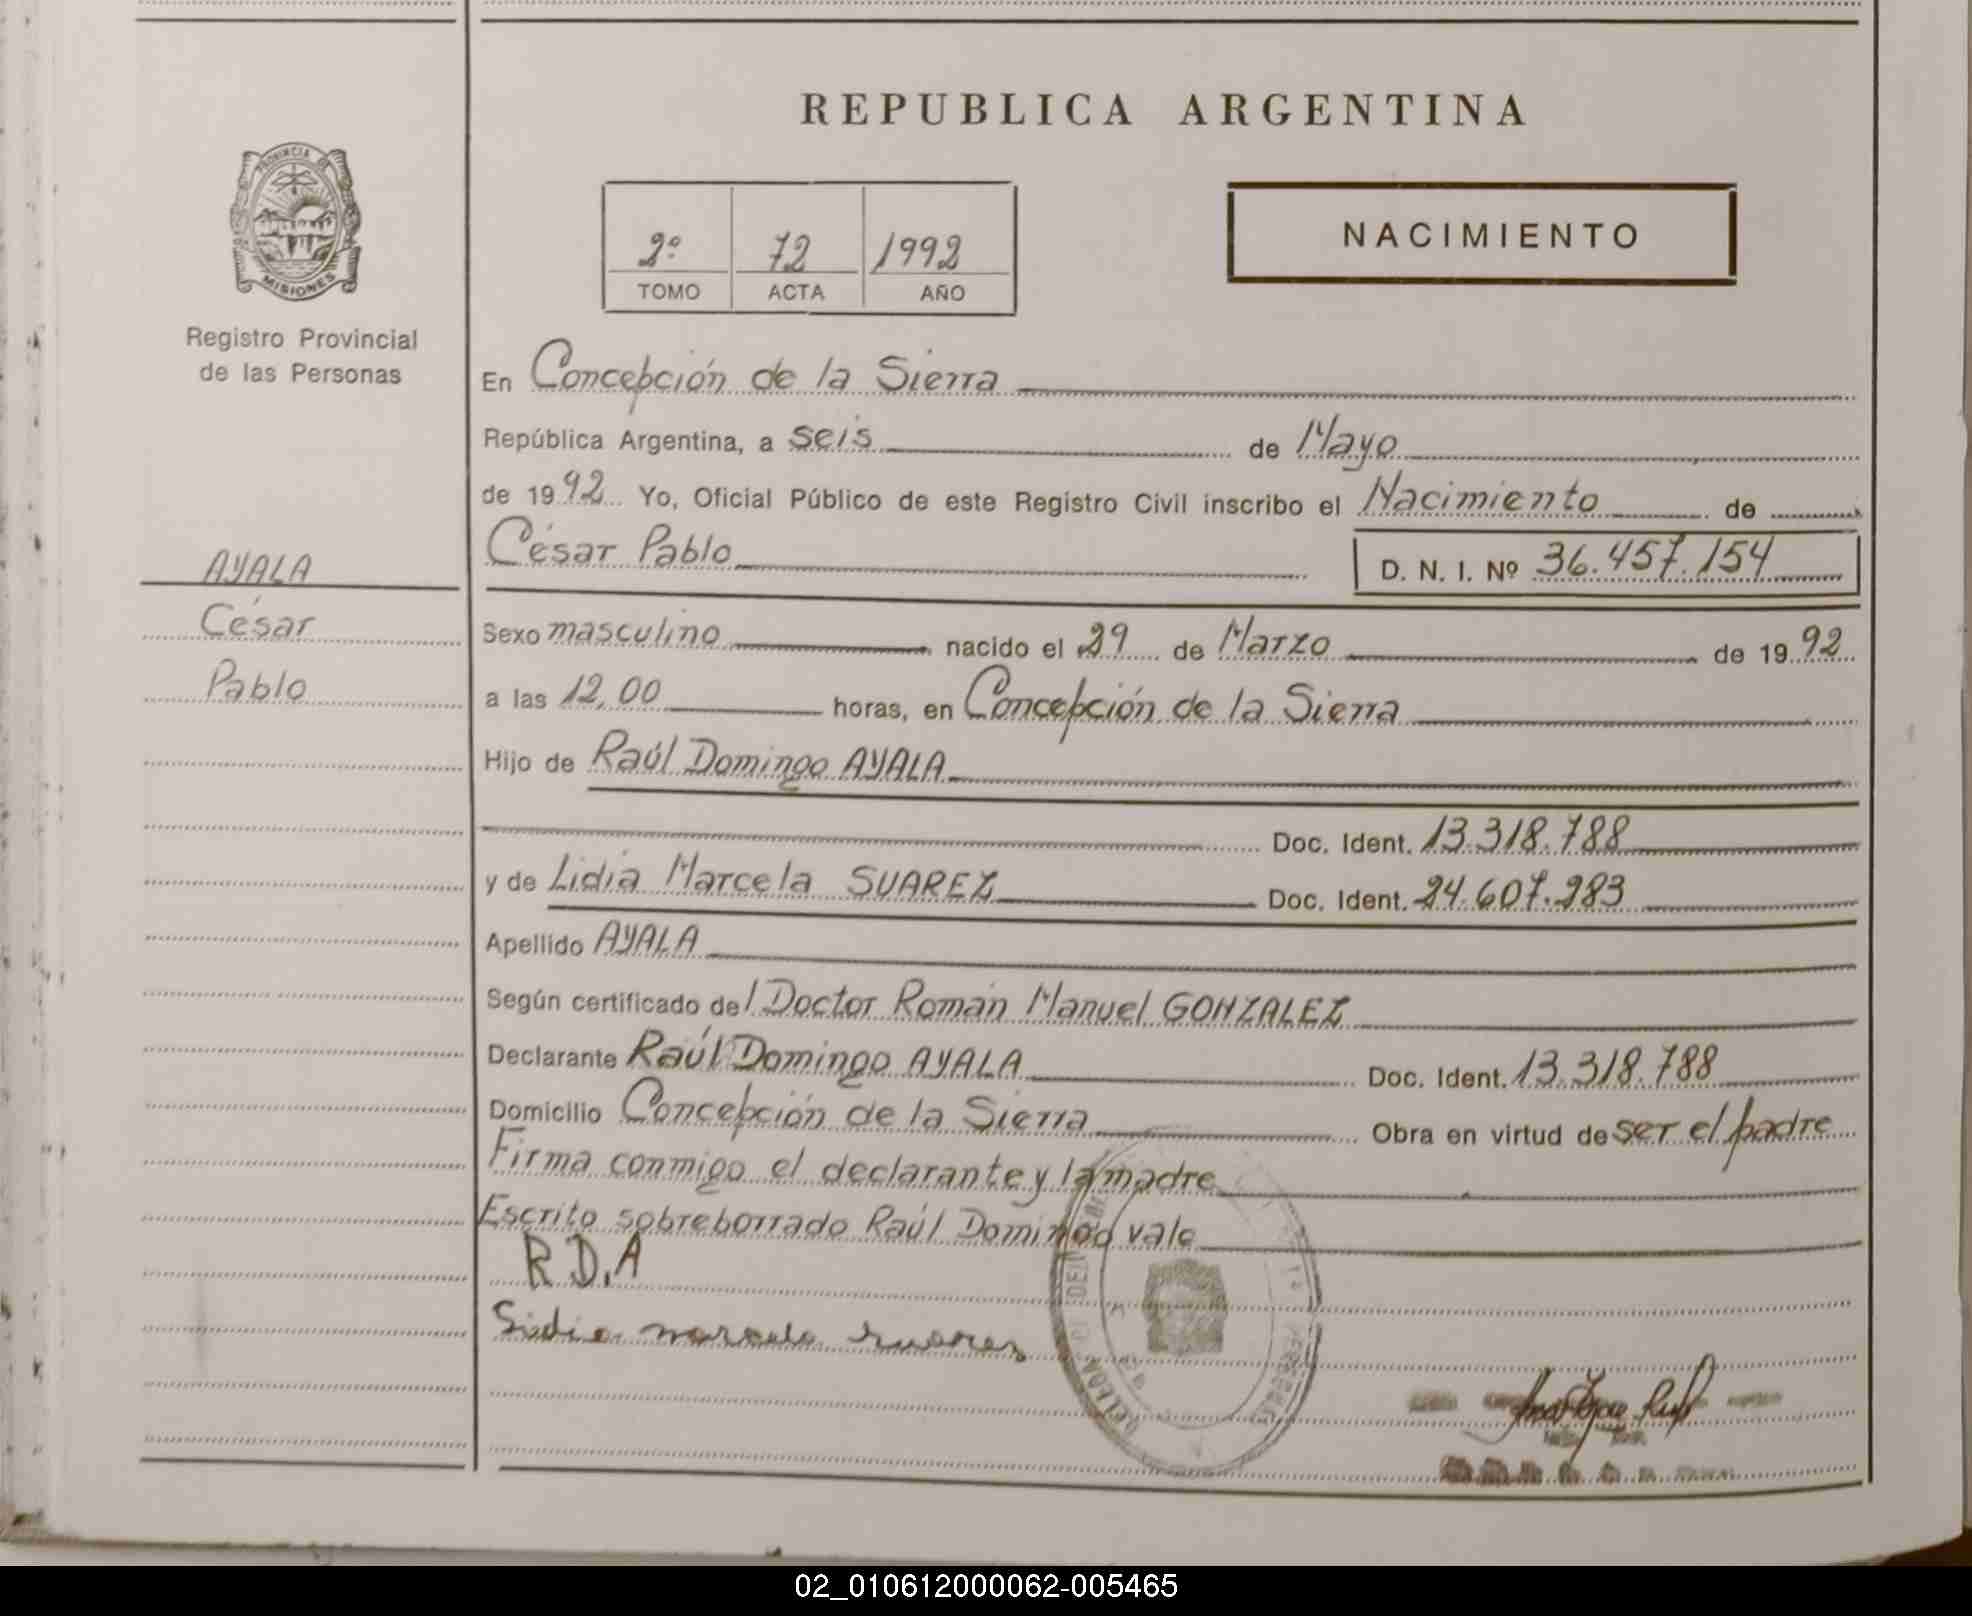 REPUBLICA ARGENTINA
PROVINCIA DE
MISIONES
Registro Provincial
de las Personas
2º 72 1992
TOMO ACTA AÑO
NACIMIENTO
En Concepción de la Sierra
República Argentina, a seis de Mayo
de 1992 Yo, Oficial Público de este Registro Civil inscribo el Nacimiento de
César Pablo D. N. I. Nº 36.457.154
AYALA
César
Pablo
Sexo masculino nacido el 29 de Marzo de 1992
a las 12,00 horas, en Concepción de la Sierra
Hijo de Raúl Domingo AYALA
Doc. Ident. 13.318.788
y de Lidia Marcela SUAREZ Doc. Ident. 24.607.283
Apellido AYALA
Según certificado del Doctor Román Manuel GONZALEZ
Declarante Raúl Domingo AYALA Doc. Ident. 13.318.788
Domicilio Concepción de la Sierra Obra en virtud de ser el padre
Firma conmigo el declarante y la madre
Escrito sobreborrado Raúl Domingo vale
R.D.A
Lidia marcela suarez
02_010612000062-005465